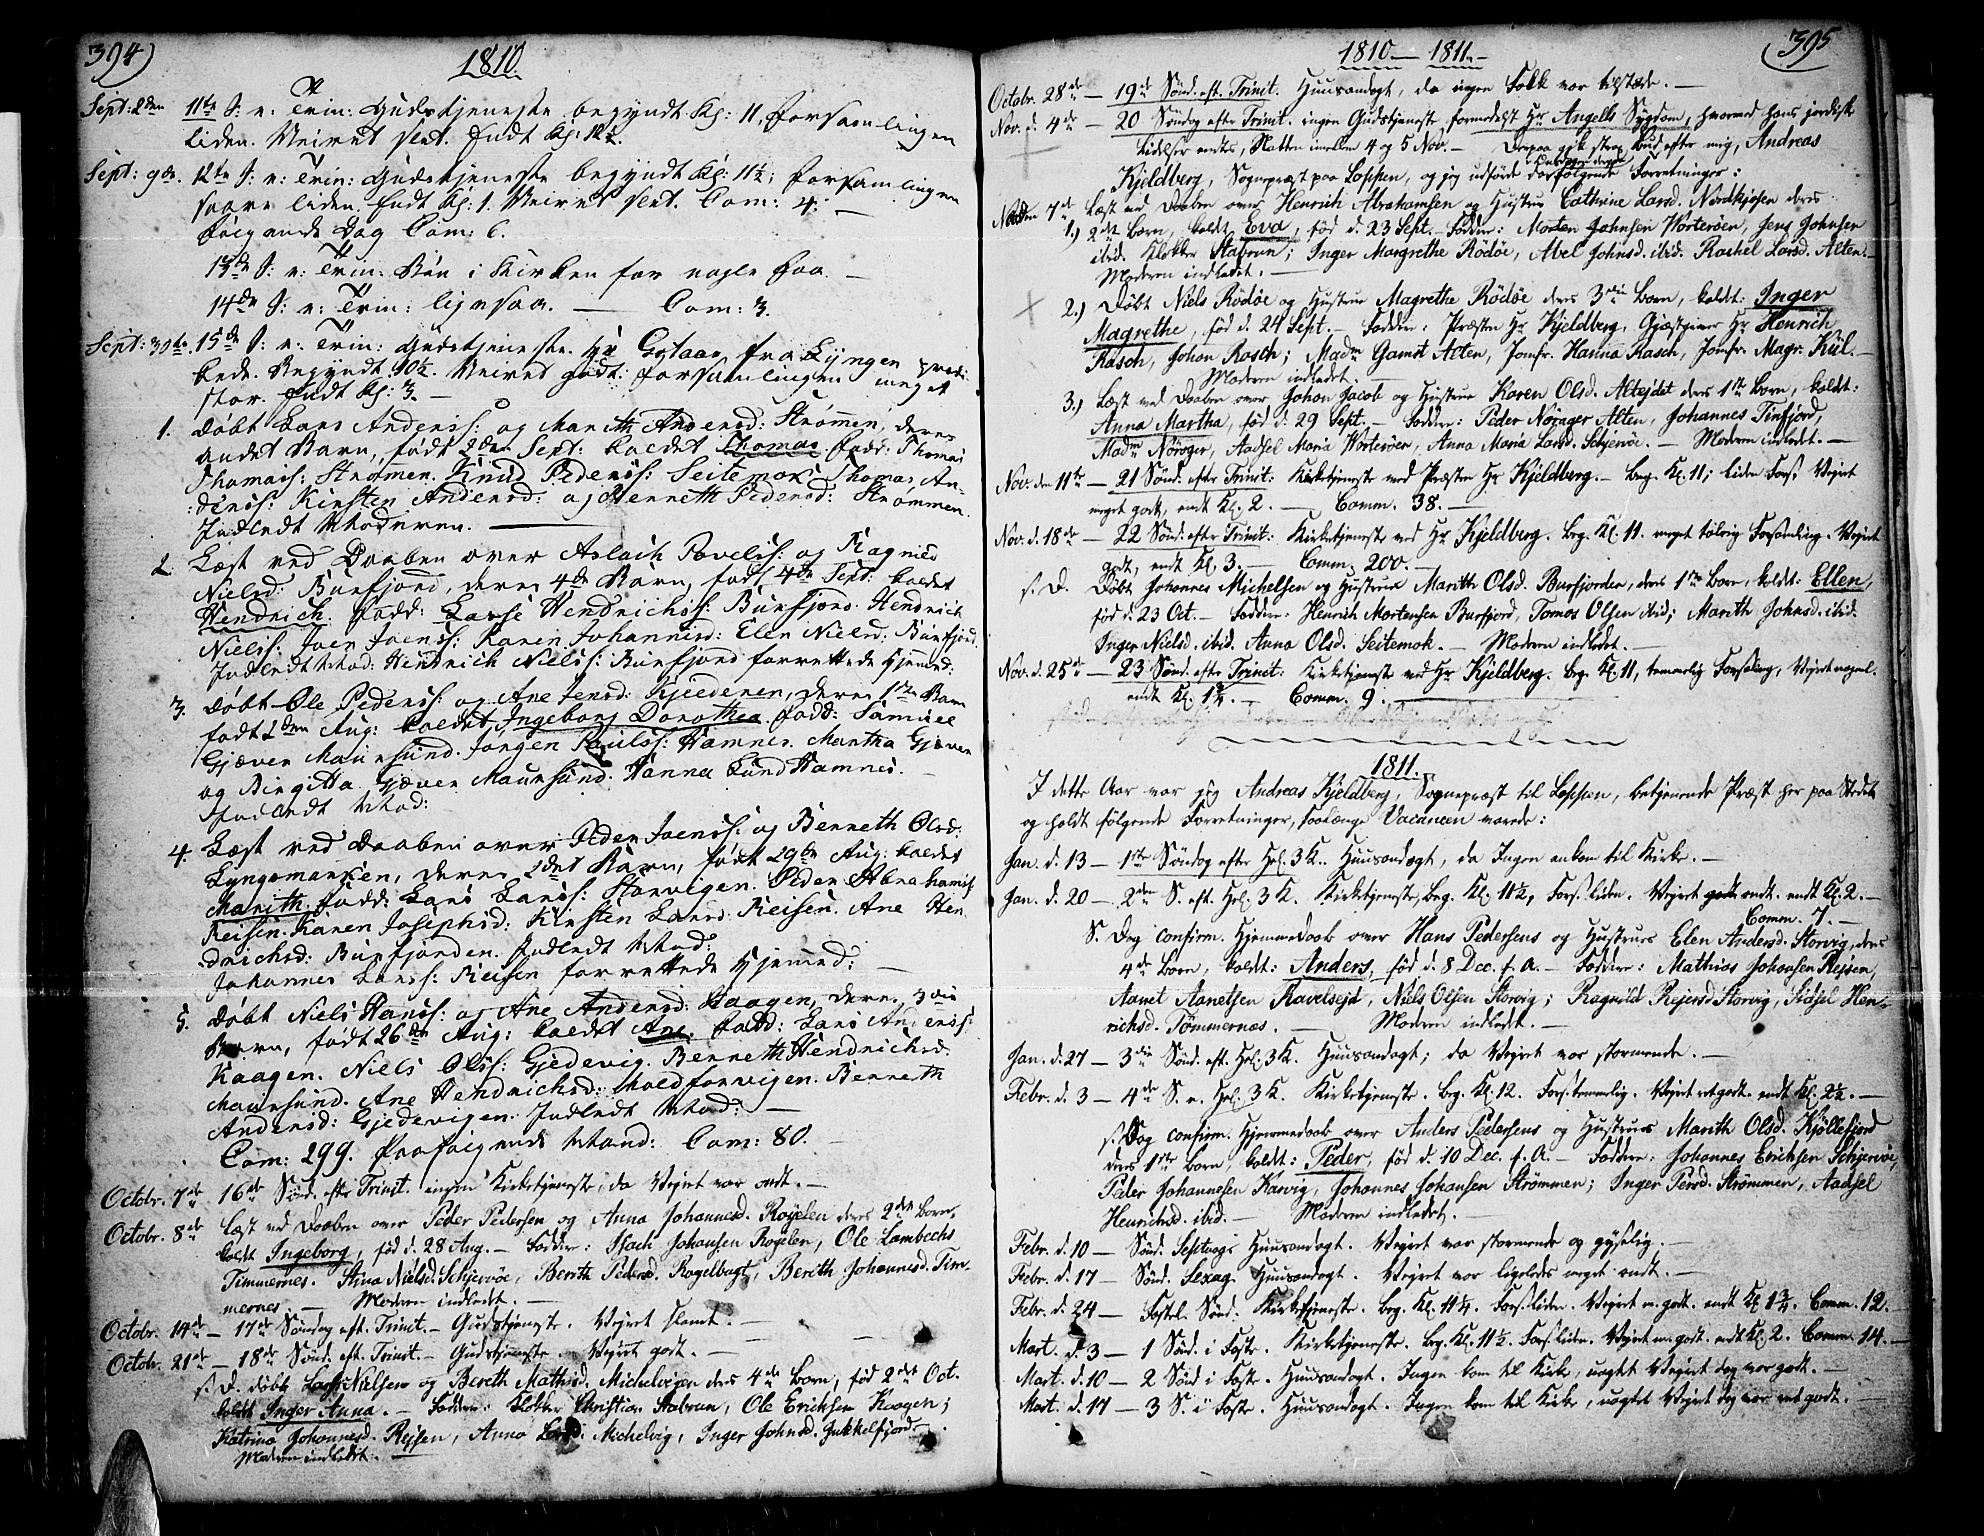 394)
1810
Sept: 2den 11te S: e: Trin: Gudstjeneste begyndt Kl: 11, forsamlingen
liden. Veiret slet. Endt Kl: 12½.
Sept: 9de. 12te S: e: Trin: Gudstjeneste begyndt Kl: 11½; forsamlingen
saare liden. Endt Kl: 1. Veiret slet. Com: 4: —
følgende Dag Com: 6.
13de S: e: Trin: Bøn i Kirken for nogle faa. —
14de S: e: Trin: ligesaa. — Com: 3.
Sept: 30te. 15de S: e: Trin: Gudstjeneste. Hr fra Lyngen prædi-
kede. Begyndt 10½. Veiret godt: forsamlingen meget
stor. Endt Kl: 3. —
1. Døbt Lars Anderss: og Marith Andersd: Strømmen, deres
andet Barn, født 2den Sept: kaldet Thomas. fadd: Thomas
Thomass: Strømen. Knud Peders: Seitemok. Thomas An-
derss: Kirsten Andersd: og Berreth Pedersd: Strømmen.
Indledt Moderen. —
2. Læst ved Daaben over Aslach Povelss: og Ragnild
Nielsd: Burfjord, deres 4de Barn, født 4de Sept: kaldet
Hendrich. fadd: Lasse Hendrichss: Burfjord. Hendrich
Nielss: Joen Joenss: Karen Johannisd: Elen Nielsd: Burfjord.
Indledt Mod: Hendrich Nielss: Burfjord forrettede Hjemmed:
3. Døbt Ole Pederss: og Ane Jensd: Kjeederen, deres 1ste Barn
født 2den Aug: kaldet, Ingeborg Dorothea. fadd: Samuel
Gjæver Maursund. Jørgen Poulss: Hamnes. Martha Gjæver
og Birgitta Gjæver Maursund. Hanna Lund Hamnes. —
Indledt Mod:
4. Læst ved Daaben over Peder Joenss: og Berreth Olsd:
Lyngsmarken, deres 2det Barn, født 29de Aug: kaldet
Marith. fadd: Lars Larss: Storvigen. Peder Abrahamss:
Reisen. Karen Josephsd: Kirsten Larsd: Reisen. Ane Hen
drichsd: Burfjorden. Indledt Mod:
Johannes Larss: Reisen forrettede Hjemmed: —
5. Døbt Niels Hanss: og Ane Andersd: Kaagen, deres 3die
Barn, født 26de Aug: kaldet Ane. fadd: Lars Anderss:
Kaagen. Niels Olss: Gjedevig. Berreth Hendrichsd:
Maursund. Ane Hendrichsd: Moldforvigen. Berreth
Andersd: Gjedevigen. Indledt Mod: —
Com: 299. Paafølgende Mand: Com: 80. —
Octobr. 7de 16de Sønd. efter Trinit. ingen Kirketjeneste, da Vejret var ondt. —
Octobr. 8de læst ved Daaben over Peder Pedersen og Anna Johannesd. Rojelen deres 2det Barn,
kaldt Ingeborg, fød d. 28 Aug. — Faddere: Isach Johansen Rojelen, Ole Lambechs
Timmernes. Stina Nielsd. Schjervøe, Berith Pedersd. Rogelbugt, Berith Johannesd. Tim-
mernes. — Moderen indledet. —
Octobr. 14de — 17de Søndag eft. Trinit. — Gudstjeneste. Vejret slemt. —
Octobr. 21de — 18de Sønd. eft. Trinit. — Gudstjeneste. Vejret godt. —
s. D. døbt Lars Nielsen og Bereth Mathisd. Michelvigen deres 4de Barn, fød 2det Oct.
kaldt Inger Anna. — Faddere: Klokker Christian Stabrun, Ole Erichsen Kaagen;
Katrina Johannesd. Rejsen, Anna Larsd. Michelvig, Inger Johnsd. Jukkelfjord. —
Moderen indledet.
1810 — 1811 —
(395
Octobr. 28de — 19de Sønd. eft. Trinit. Huusandagt, da ingen Folk var tilstæde. —
Nov. d. 4de — 20 Søndag efter Trinit. ingen Gudstjeneste formedelst Hr. Angells Sygdom, hvormed hans jordisk
lidelser endtes, Natten imellem 4 og 5 Nov. — Derpaa gik strax Bud efter mig, Andreas
Kjeldberg, Sognepræst paa Loppen, og jeg udførte derfølgende Forretninger:
Novbr 7de Læst ved Daaben over Henrich Abrahamsen og Hustrue Cathrine Larsd. Nordkjosen deres
1.) 2det Barn, kaldt Eva, fød d. 23 Sept. — Faddere: Morten Johnsen Worterøen, Jens Johnsen
ibid. Klokker Stabrun; Inger Margrethe Rödöe, Abel Johnsd. ibid. Rachel Larsd. Alten. —
Moderen indledet. —
2.) Døbt Niels Rödöe og Hustrue Magrethe Rödöe ders 3die Barn, kaldt: Inger
Magrethe, fød d. 24 Sept. — Faddere: Præsten Hr Kjeldberg, Gjæstgiver Hr Henrich
Rasch, Johan Rasch; Madm Gamst Alten, Jomfr. Hanna Rasch, Jomfr. Magr. Kül. —
Moderen indledet. —
3.) Læst ved Daaben over Johan Jacob og Hustrue Karen Olsd. Alteidet ders 1ste Barn, kaldt:
Anna Martha, fød d. 29 Sept. — Faddere: Peder Nöroger Alten, Johannes Tinfjord,
Madm Nöroger, Aadsel Maria Worterøen, Anna Maria Larsd. Schjervøe. — Moderen indledet. —
Nov. den 11te — 21 Sønd. efter Trinit: Kirketjeneste ved Præsten Hr Kjeldberg. — beg. Kl. 11; liden Fors: Vejret
meget godt, endt Kl. 2. — Comm. 38. —
Nov. d. 18de — 22 Sønd. efter Trinit: Kirketjeneste ved Hr Kjeldberg. beg. Kl. 11. meget talrig Forsamling. Vejret
godt, endt Kl. 3. — Comm. 200. —
s. D. Døbt Johannes Michelsen og Hustrue Marith Olsd. Burfjorden, ders 1ste Barn, kaldt: Ellen,
fød d. 23 Oct. — Faddere: Henrich Mortensen Burfjord, Tomas Olsen ibid; Marith Johnsd. ibid.
Inger Nielsd. ibid. Anna Olsd. Seitemok. — Moderen indledet. —
Nov. d. 25de — 23 Sønd. efter Trinit: Kirketjeneste ved Hr Kjeldberg. beg. Kl. 11, temmelig Forsaling, Vejret
endt Kl. 1¾. — Comm. 9. —
1811.
I dette Aar var jeg Andreas Kjeldberg, Sognepræst til Loppen, betjenende Præst her paa Stedet
og holdt følgende Forretninger, saalænge Vacancen varede:
Jan. d. 13 — 1ste Søndag efter Hel. 3 K. Huusandagt, da Ingen ankom til Kirke. —
Jan. d. 20 — 2den S. eft. Hel. 3 K. Kirketjeneste, beg. Kl. 11½, Fors. liden. Vejret ondt. endt Kl. 2. —
Comm. 7. —
S. Dag confirm. Hjemmedaab over Hans Pedersens og Hustrues Elen Andersd. Storvig, ders
4de Barn, kaldt: Anders, fød d. 8 Dec. f. A. — Faddere: Mathias Johansen Rejsen,
Aanet Aanetsen Ravelsejd, Niels Olsen Storvig; Ragnild Rejersd. Storvig, Sidsel Hen-
richsd. Tömmernæs. — Moderen indledet. —
Jan. d. 27 — 3die Sønd. eft. Hel. 3 K. Huusandagt; da Vejret var stormende. —
Febr. d. 3 — 4de S. e. Hel. 3 K. Kirketjeneste. beg. Kl. 12. Fors. temmelig. Vejret retgodt. endt Kl. 2½. —
s. Dag confirm. Hjemmedaab over Anders Pedersens og Hustrues Marith Olsd. Kjöllefjord
ders 1ste Barn, kaldt: Peder, fød d. 10 Dec. f. A. — Faddere: Johannes Erichsen Schjervøe,
Peder Johannesen Karvig, Johannes Johansen Strömmen; Inger Persd. Strömmen, Aadsel
Henrichsd. ibid. — Moderen indledet. —
Febr. d. 10 — Sønd. Septuag. Huusandagt. Vejret var stormende og gyselig. —
Febr. d. 17 — Sønd. Sexag. Huusandagt. Vejret var ligeledes meget ondt. —
Febr. d. 24 — Fastel. Sønd. Kirketjeneste. beg. Kl. 11¼. Fors. liden. Vejret m. godt. endt Kl. 1¾. Comm. 12. —
Mart. d. 3 — 1 Sønd. i Faste. Kirketjeneste. beg. Kl. 11½. Fors. liden. Vejret m. godt. endt Kl. 2. Comm. 14. —
Mart. d. 10 — 2 Sønd i Faste. Huusandagt. Ingen kom til Kirke, uagtet Vejret dog var godt. —
Mart. d. 17 — 3 S. i Faste. Huusandagt. Ingen kom til Kirke, uagtet Vejret dog var ret godt. —